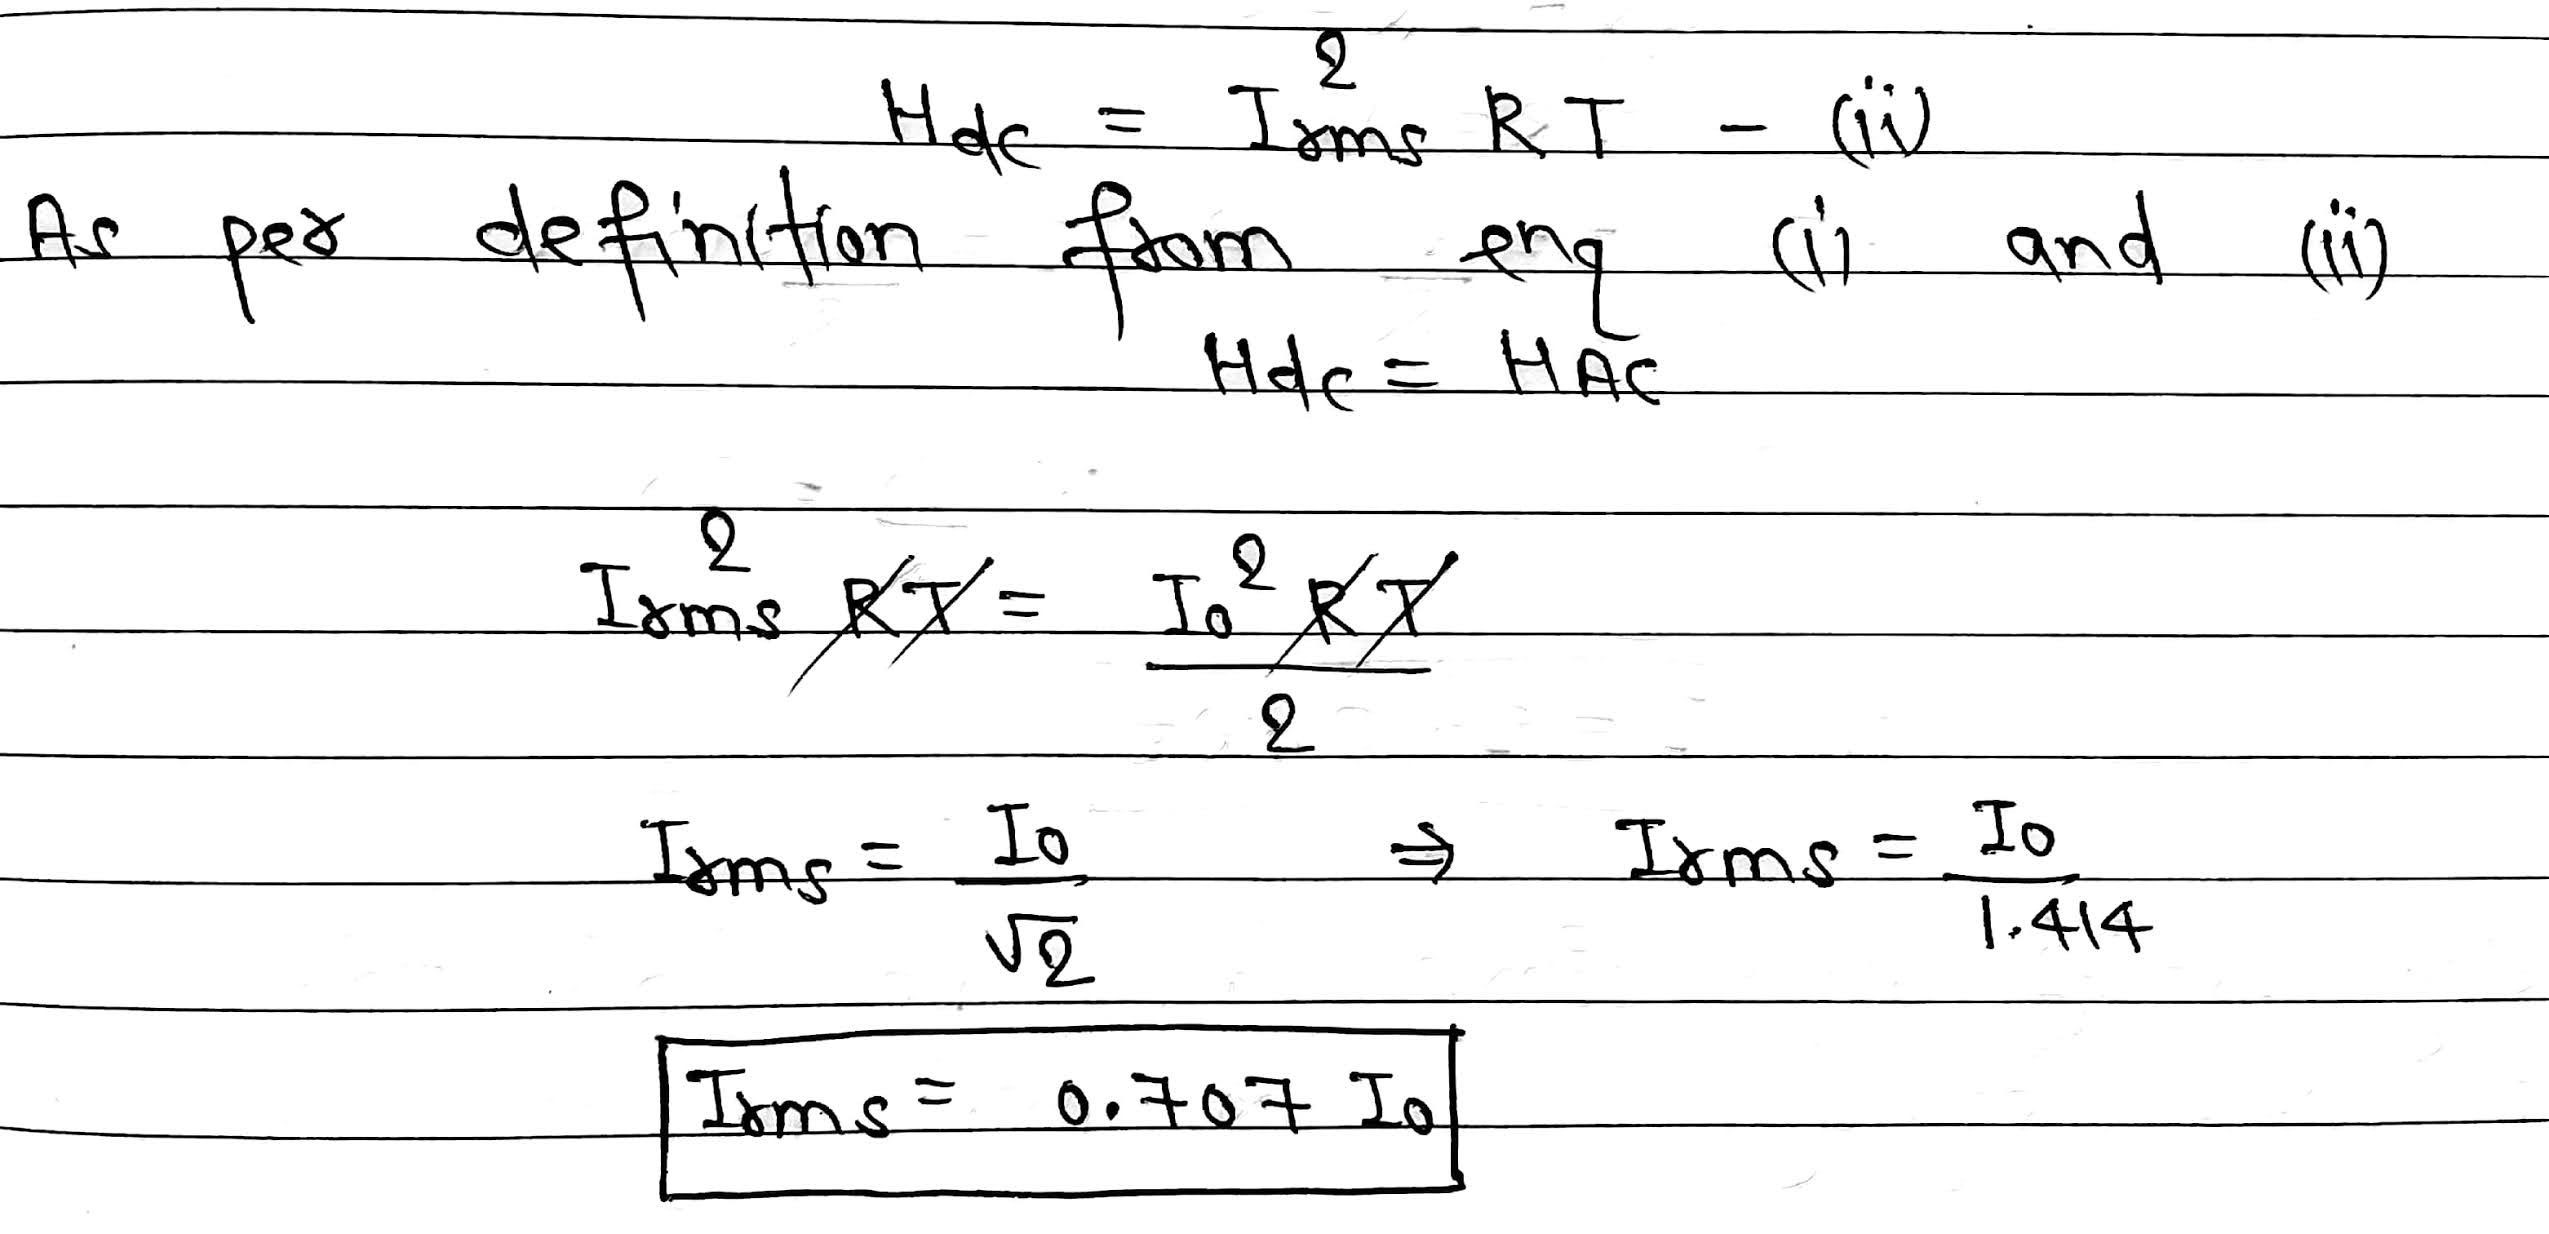 Hdc = Irms² RT – (ii)
As per definition from enq (i) and (ii)
Hdc = HAC
Irms² RT = I0² RT / 2
Irms = I0 / √2 ⇒ Irms = I0 / 1.414
Irms = 0.707 I0